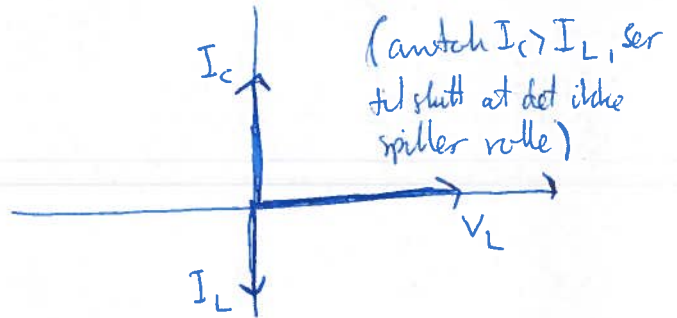 (antok I_C > I_L, ser
til slutt at det ikke
spiller rolle)
I_C
V_L
I_L